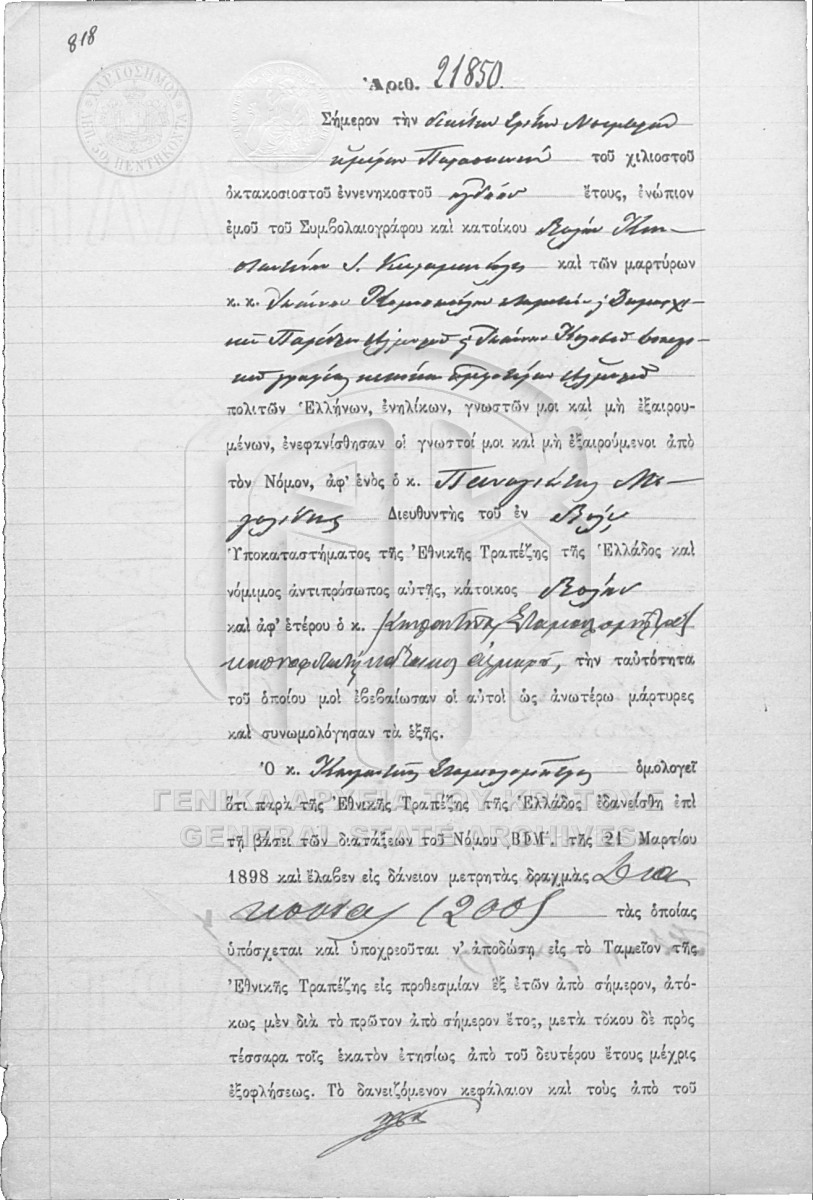 818
ΧΑΡΤΟΣΗΜΟΝ
Ἀριθ. 21850.
Σήμερον τὴν δεκάτην τρίτην Νοεμβρίου
ἡμέραν Παρασκευὴν τοῦ χιλιοστοῦ
ὀκτακοσιοστοῦ ἐννενηκοστοῦ ὀγδόου ἔτους, ἐνώπιον
ἐμοῦ τοῦ Συμβολαιογράφου καὶ κατοίκου Βόλου Κων-
σταντίνου καὶ τῶν μαρτύρων
κ. κ. Ἰωάννου
Ἁλμυροῦ Ἰωάννου
Ἁλμυροῦ
πολιτῶν Ἑλλήνων, ἐνηλίκων, γνωστῶν μοι καὶ μὴ ἐξαιρου-
μένων, ἐνεφανίσθησαν οἱ γνωστοί μοι καὶ μὴ ἐξαιρούμενοι ἀπὸ
τὸν Νόμον, ἀφ' ἑνὸς ὁ κ. Παναγιώτης
Διευθυντὴς τοῦ ἐν Βόλῳ
Ὑποκαταστήματος τῆς Ἐθνικῆς Τραπέζης τῆς Ἑλλάδος καὶ
νόμιμος ἀντιπρόσωπος αὐτῆς, κάτοικος Βόλου
καὶ ἀφ' ἑτέρου ὁ κ.
κάτοικος Ἁλμυροῦ, τὴν ταὐτότητα
τοῦ ὁποίου μοὶ ἐβεβαίωσαν οἱ αὐτοὶ ὡς ἀνωτέρω μάρτυρες
καὶ συνωμολόγησαν τὰ ἑξῆς.
Ὁ κ. ὁμολογεῖ
ΓΕΝΙΚΑ ΑΡΧΕΙΑ ΤΟΥ ΚΡΑΤΟΥΣ
ὅτι παρὰ τῆς Ἐθνικῆς Τραπέζης τῆς Ἑλλάδος ἐδανείσθη ἐπὶ
GENERAL STATE ARCHIVES
τῇ βάσει τῶν διατάξεων τοῦ Νόμου ΒΦΜ'. τῆς 21 Μαρτίου
1898 καὶ ἔλαβεν εἰς δάνειον μετρητὰς δραχμὰς Δια
κοσίας (200) τὰς ὁποίας
ὑπόσχεται καὶ ὑποχρεοῦται ν' ἀποδώσῃ εἰς τὸ Ταμεῖον τῆς
Ἐθνικῆς Τραπέζης εἰς προθεσμίαν ἓξ ἐτῶν ἀπὸ σήμερον, ἀτό-
κως μὲν διὰ τὸ πρῶτον ἀπὸ σήμερον ἔτος, μετὰ τόκου δὲ πρὸς
τέσσαρα τοῖς ἑκατὸν ἐτησίως ἀπὸ τοῦ δευτέρου ἔτους μέχρις
ἐξοφλήσεως. Τὸ δανειζόμενον κεφάλαιον καὶ τοὺς ἀπὸ τοῦ